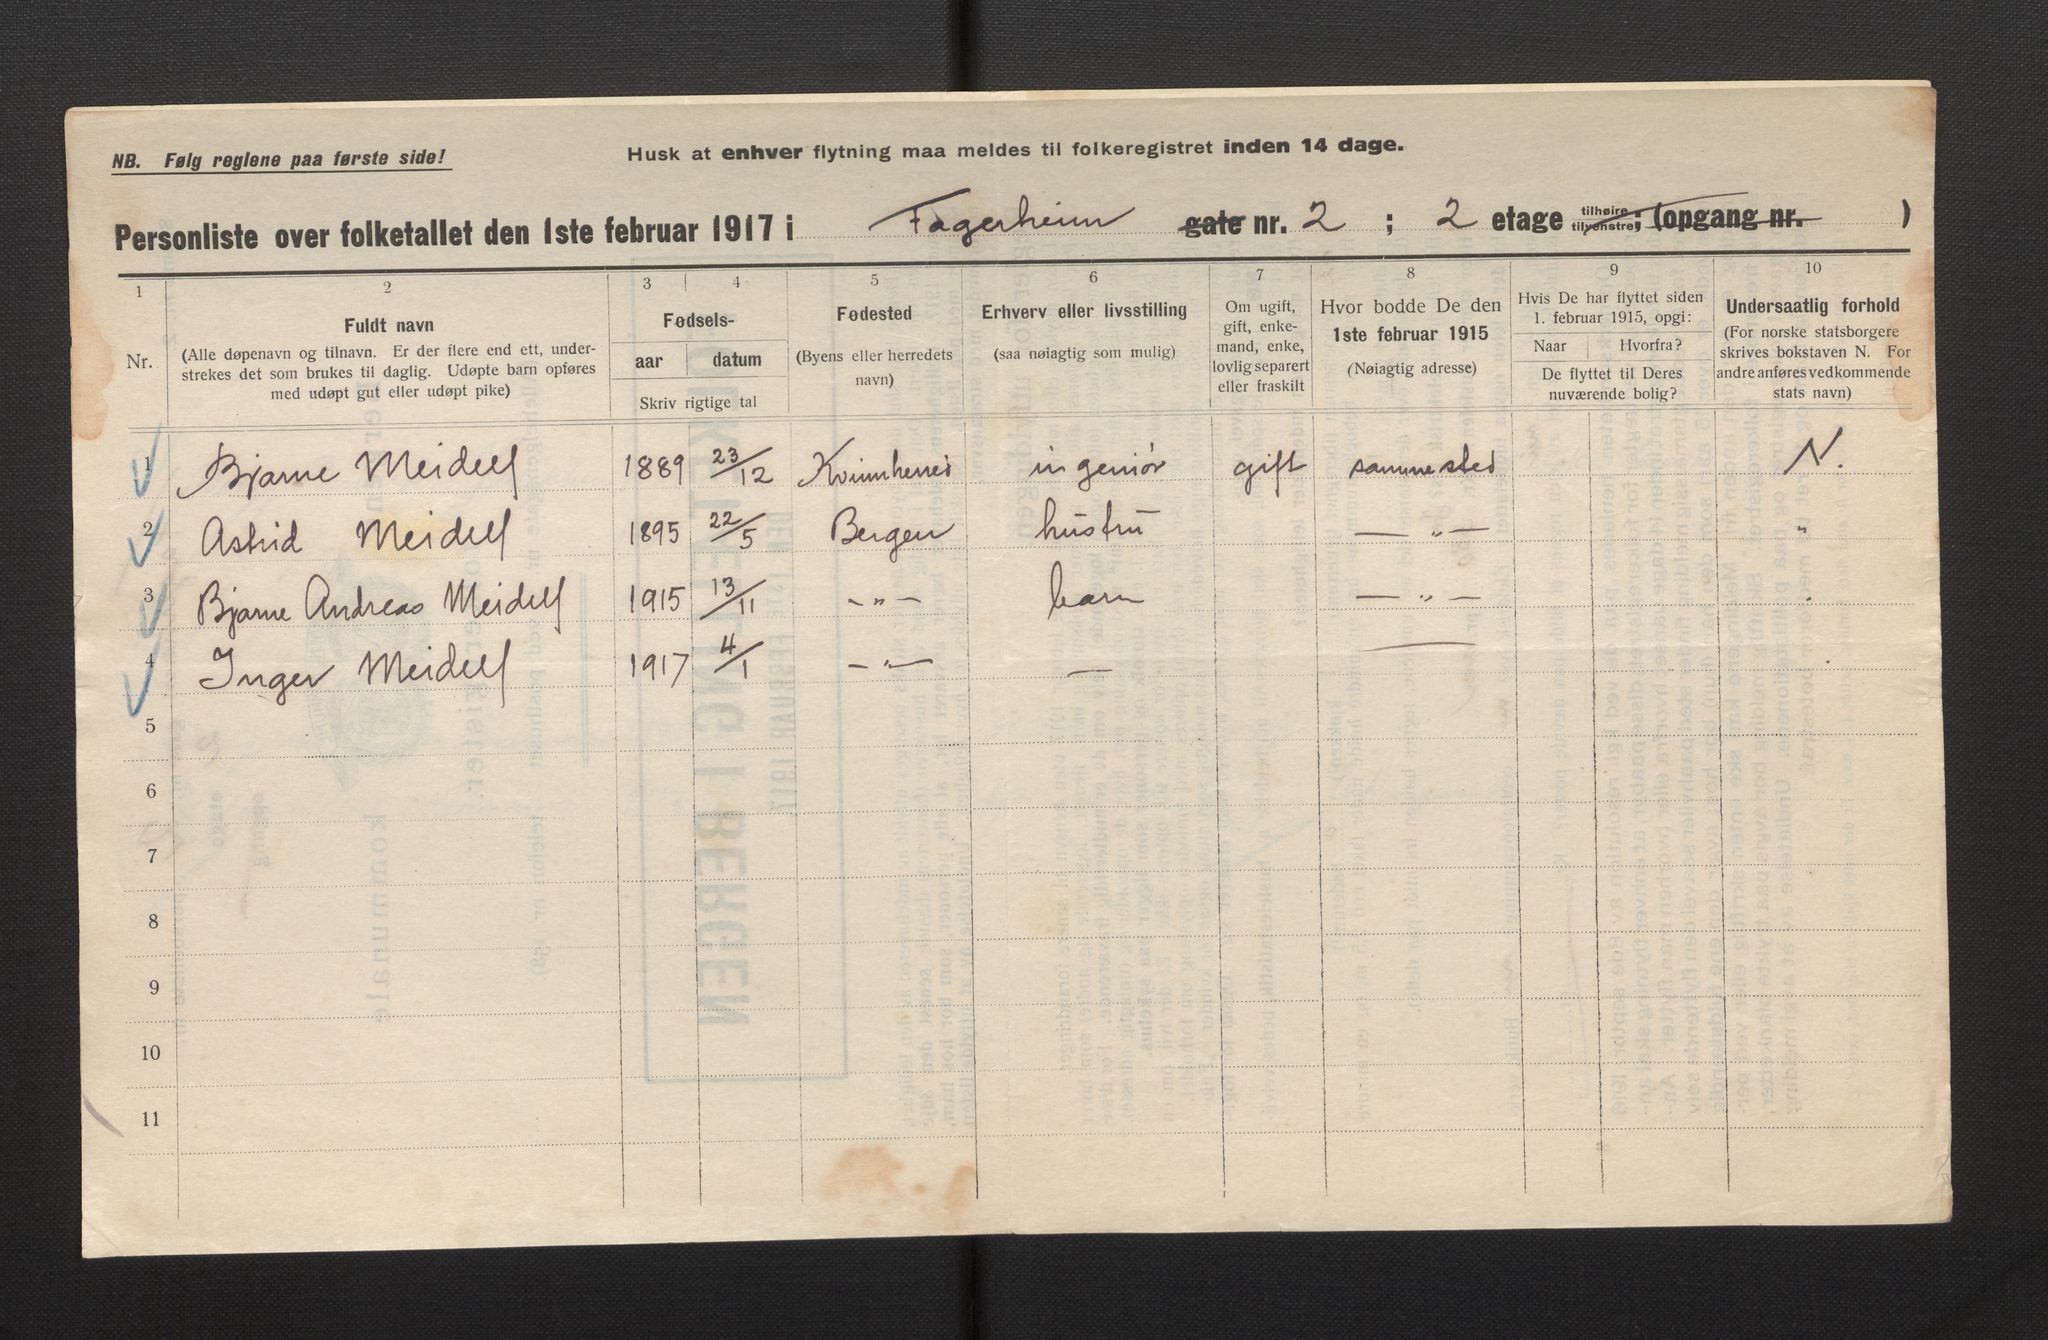 NB. Følg reglene paa første side!
Husk at enhver flytning maa meldes til folkeregistret inden 14 dage.
Personliste over folketallet den 1ste februar 1917 i Fagerheim gate nr. 2 ; 2 etage tilhøire tilvenstre; (opgang nr. )
1 2 3 4 5 6 7 8 9 10
Nr.
Fuldt navn
(Alle døpenavn og tilnavn. Er der flere end ett, under-
strekes det som brukes til daglig. Udøpte barn opføres
med udøpt gut eller udøpt pike)
Fødsels-
aar datum
Skriv rigtige tal
Fødested
(Byens eller herredets
navn)
Erhverv eller livsstilling
(saa nøiagtig som mulig)
Om ugift,
gift, enke-
mand, enke,
lovlig separert
eller fraskilt
Hvor bodde De den
1ste februar 1915
(Nøiagtig adresse)
Hvis De har flyttet siden
1. februar 1915, opgi:
Naar Hvorfra?
De flyttet til Deres
nuværende bolig?
Undersaatlig forhold
(For norske statsborgere
skrives bokstaven N. For
andre anføres vedkommende
stats navn)
1 Bjarne Meidell 1889 23/12 Kvinnherred ingeniør gift samme sted N.
2 Astrid Meidell 1895 22/5 Bergen hustru — „ — „
3 Bjarne Andreas Meidell 1915 13/11 — „ — barn — „ —
4 Inger Meidell 1917 4/1 — „ — — —
5
6
7
8
9
10
11